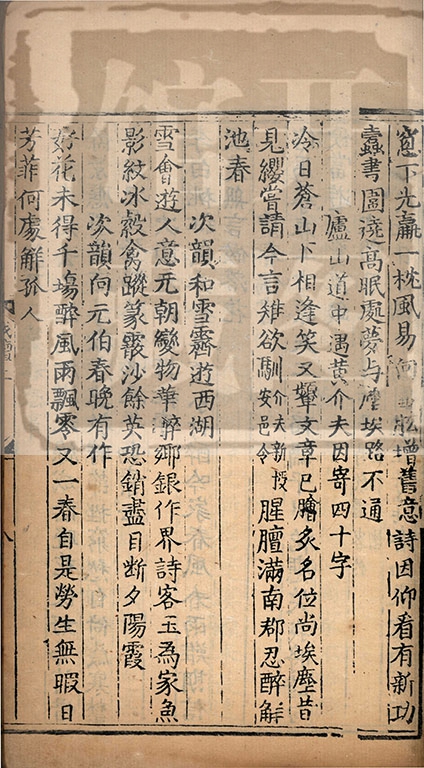 窓下先贏一枕風易肱增舊意詩因仰看有新功
蠧書圍遶高眠處夢与塵埃路不通
廬山道中遇黃介夫因寄四十字
冷日蒼山下相逢笑又顰文章已膾炙名位尚埃塵昔
見纓嘗請今言雉欲馴介夫新授安邑令腥膻滿南郡忍醉觧
池春
次韻和雪霽遊西湖
雪會遊人意元朝變物華醉鄉銀作界詩客玉為家魚
影紋冰縠禽蹤篆霰沙餘英恐銷盡目断夕陽霞
次韻向元伯春晚有作
好花未得千塲醉風雨飄零又一春自是勞生無暇日
芳菲何處觧孤人